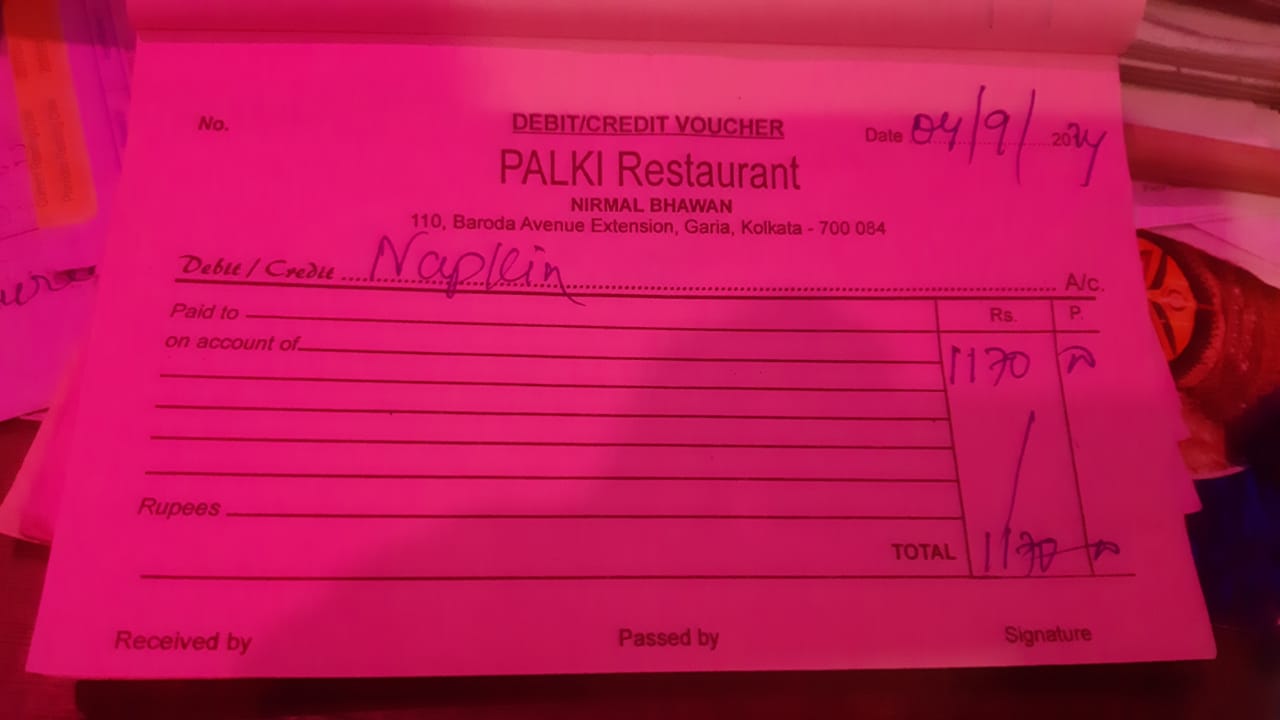 No.
DEBIT/CREDIT VOUCHER
Date 04/9/2024
PALKI Restaurant
NIRMAL BHAWAN
110, Baroda Avenue Extension, Garia, Kolkata - 700 084
Debit / Credit Napkin A/c.
Paid to Rs. P.
on account of
1170
Rupees
TOTAL 1170
Received by Passed by Signature